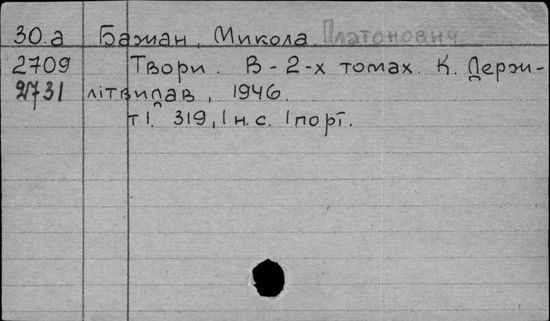 30.а Бажан, Микола Платонович
2709 Твори. В-2-х томах. К. Держ-
2731 літвидав, 1946.
т І. 319, 1 н.с. 1 порт.